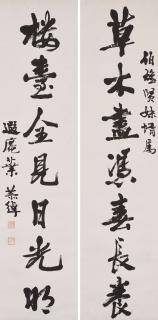 伯賢妹婿屬
草木盡憑春長養
樓臺全見日光明
遐庵葉恭綽